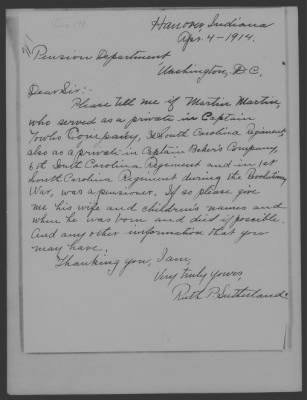 Hanover, Indiana
Apr. 4-1914.
Pension Department
Washington, D.C.
Dear Sir:-
Please tell me if Martin Martin,
who served as a private in Captain
Company, 3d South Carolina Regiment
also as a private in Captain Baker's Company,
6th South Carolina Regiment and in 1st
South Carolina Regiment during the Revolutionary
War, was a pensioner. If so please give
me his wife and children's names and
when he was born and died if possible.
And any other information that you
may have.
Thanking you, I am,
Very truly yours,
Ruth P. Sutherland.